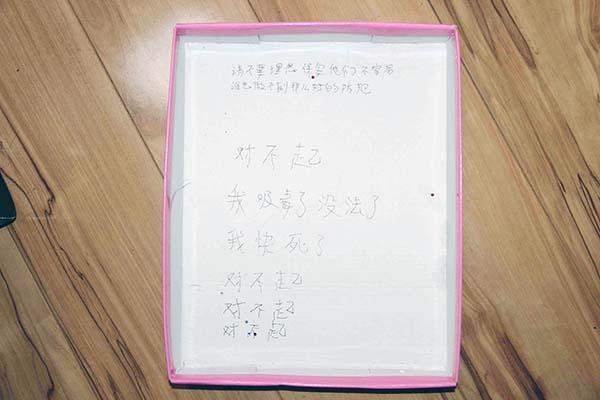 请不要埋怨保安他们不容易
谁也做不到那么好的防范
对不起
我吸毒了没法了
我快死了
对不起
对不起
对不起